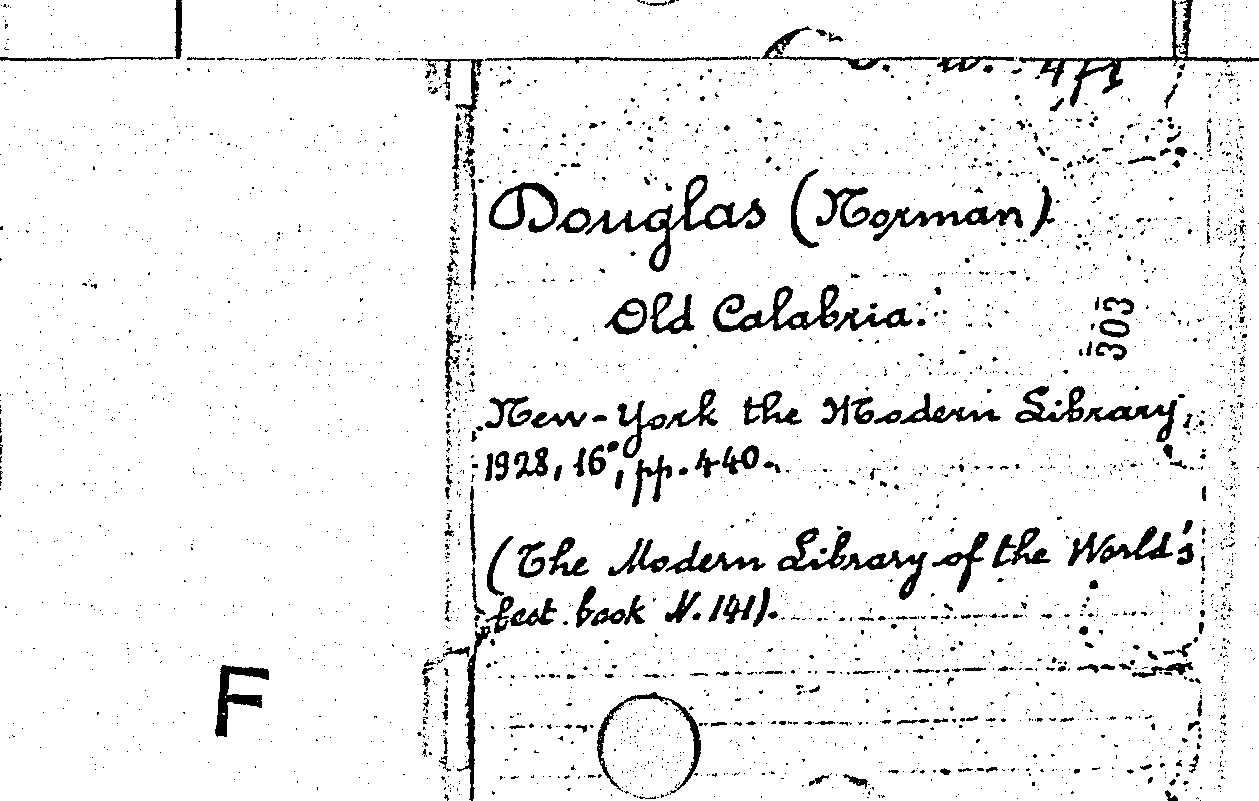 Douglas (Norman)
Old Calabria.
303
New-York the Modern Library,
1928, 16°, pp. 440.
(The Modern Library of the World's
best book N. 141).
F